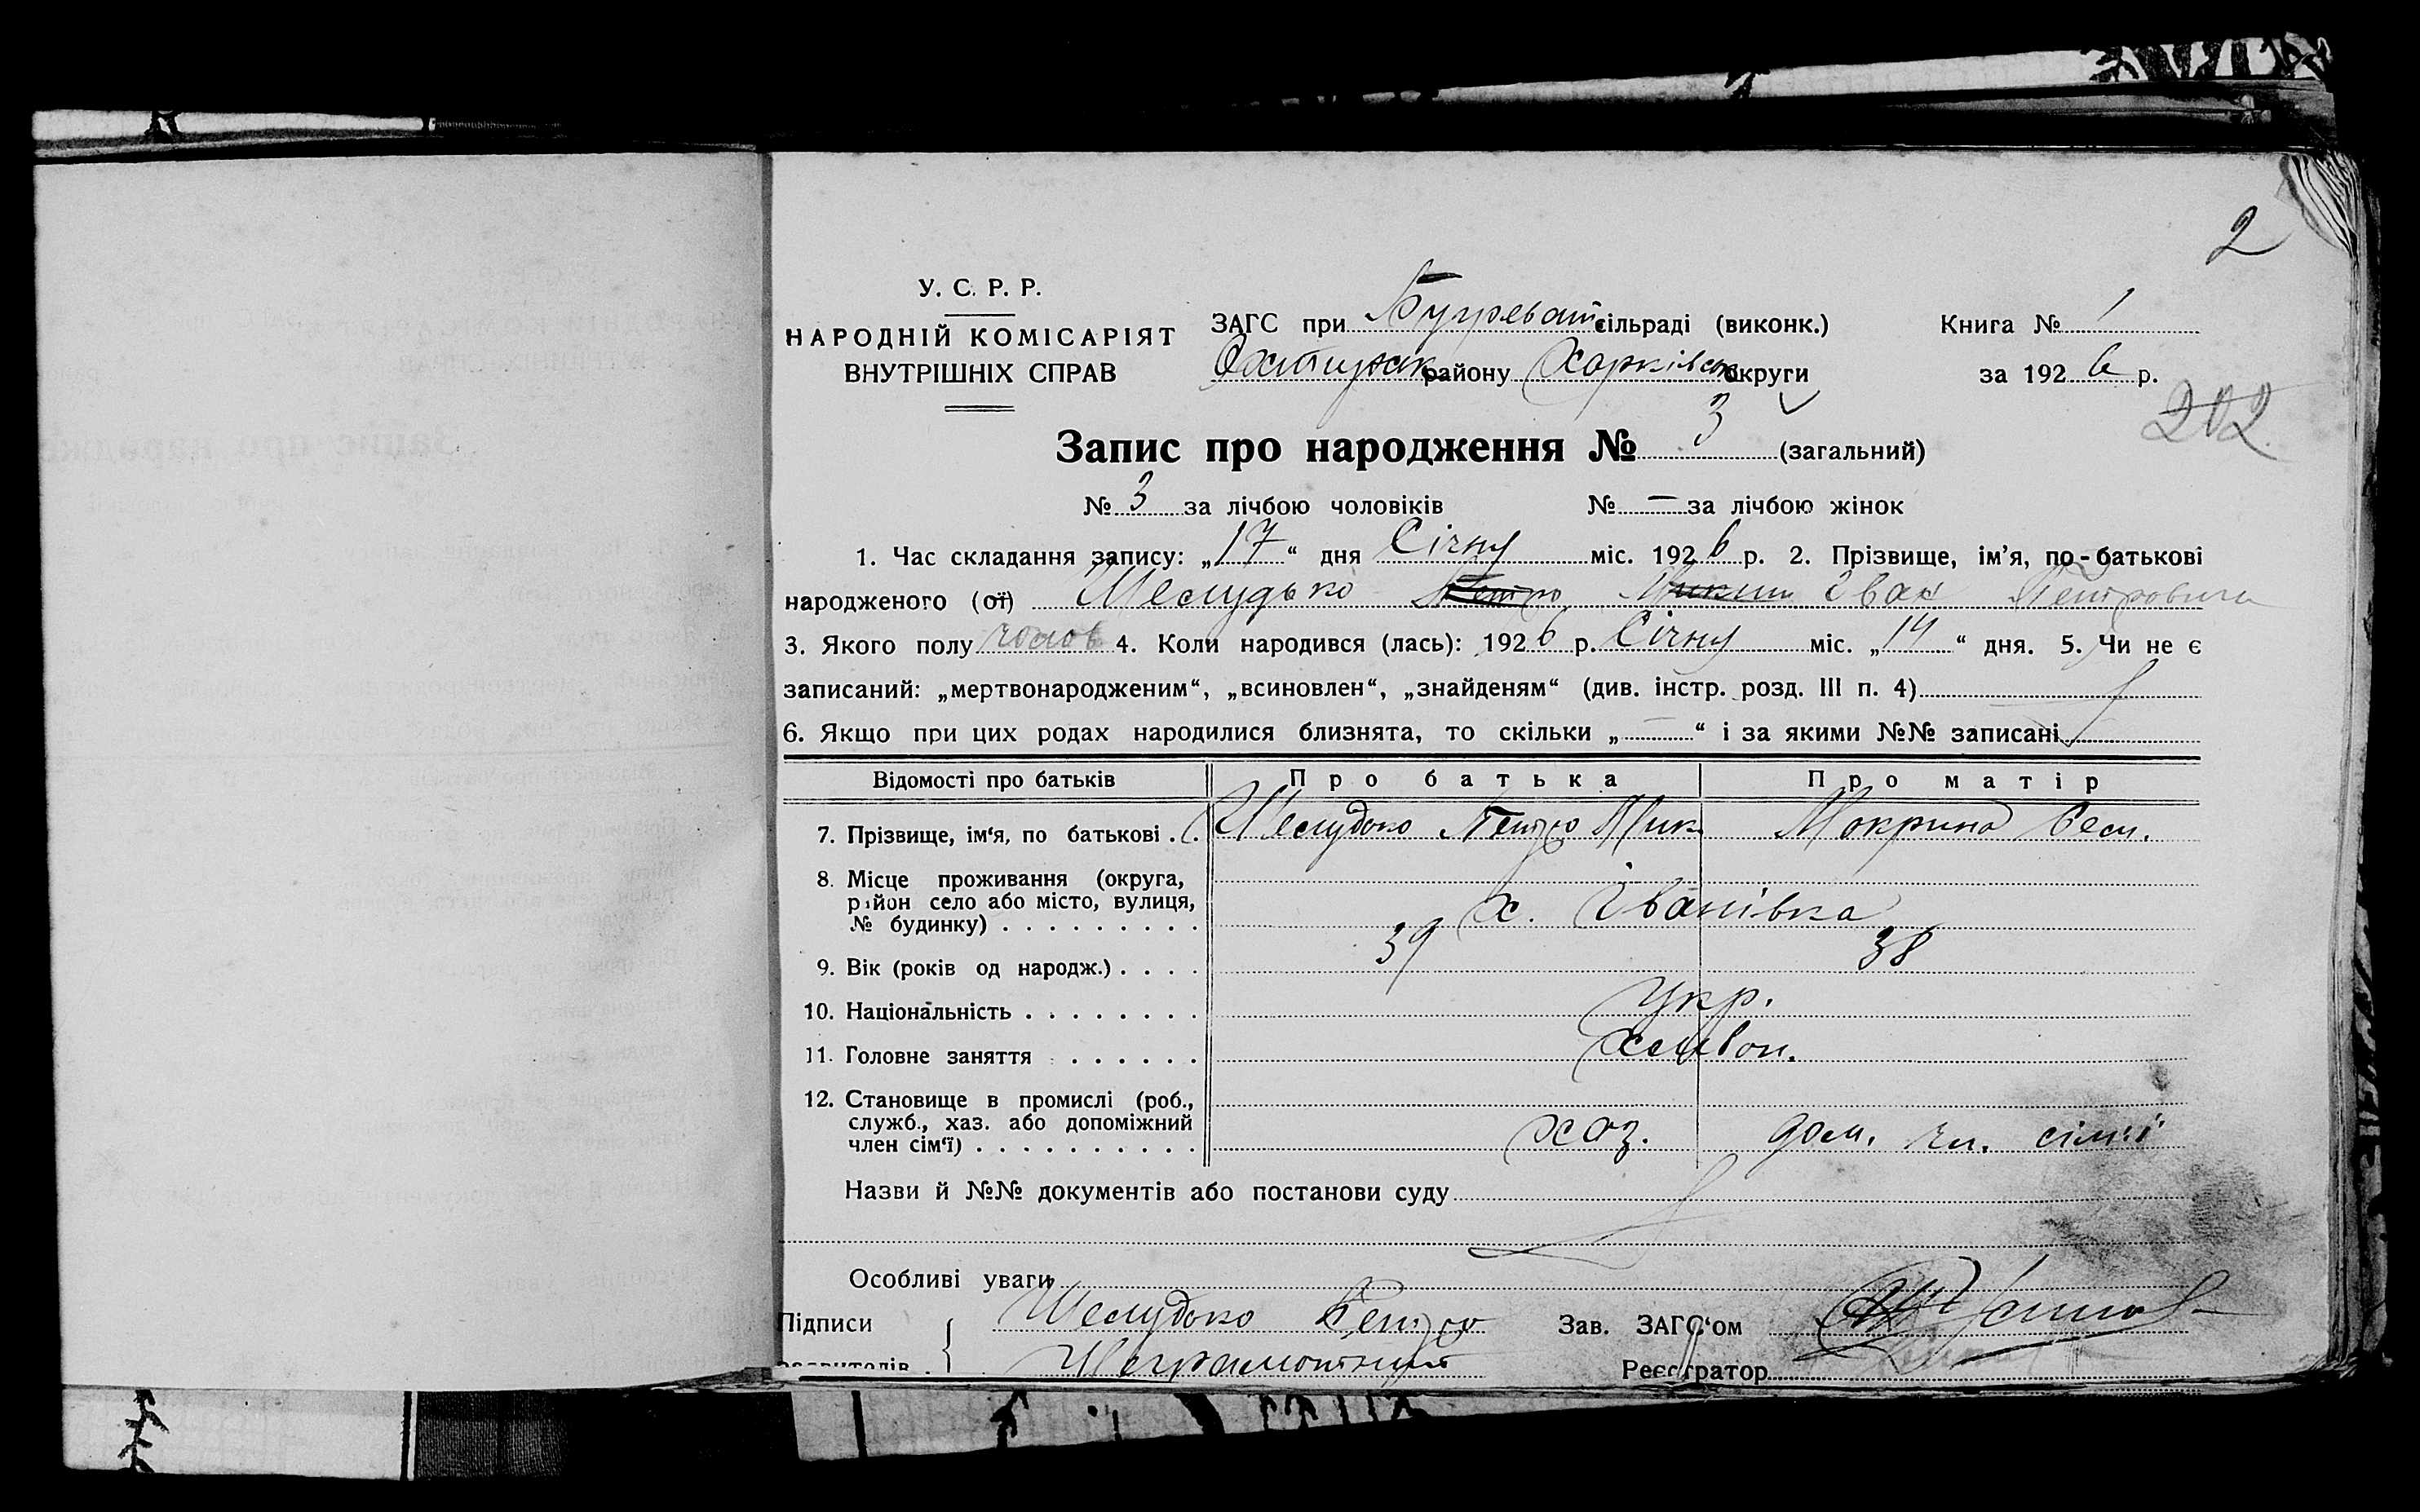 2
У. С. Р. Р.
НАРОДНІЙ КОМІСАРІЯТ
ВНУТРІШНІХ СПРАВ
ЗАГС при Бугреват. сільраді (виконк.)
Книга № 1
Охтирск району Харківськ округи
за 1926 р.
202
Запис про народження № 3 (загальний)
№ 3 за лічбою чоловіків № — за лічбою жінок
1. Час складання запису: „17“ дня Січня міс. 1926 р. 2. Прізвище, ім'я, по-батькові
народженого (ої) Шелудько Петро Микит Іван Петрович
3. Якого полу чолов 4. Коли народився (лась): 1926 р. Січня міс. „14“ дня. 5. Чи не є
записаний: „мертвонародженим“, „всиновлен“, „знайденям“ (див. інстр. розд. III п. 4)
6. Якщо при цих родах народилися близнята, то скільки „—“ і за якими №№ записані
Відомості про батьків Про батька Про матір
7. Прізвище, ім‘я, по батькові . . Шелудько Петро Мик Мокрина Сем.
8. Місце проживання (округа,
район село або місто, вулиця,
№ будинку) . . . . . . . . . х. Іванівка
9. Вік (років од народж.) . . . . 39 38
10. Національність . . . . . . . . Укр.
11. Головне заняття . . . . . . Хлібон.
12. Становище в промислі (роб.,
служб., хаз. або допоміжний
член сім‘ї) . . . . . . . . . . хаз. дом. чл. сімї
Назви й №№ документів або постанови суду
Особливі уваги
Підписи Шелудько Петро Зав. ЗАГС‘ом
Неграмотний Реєстратор